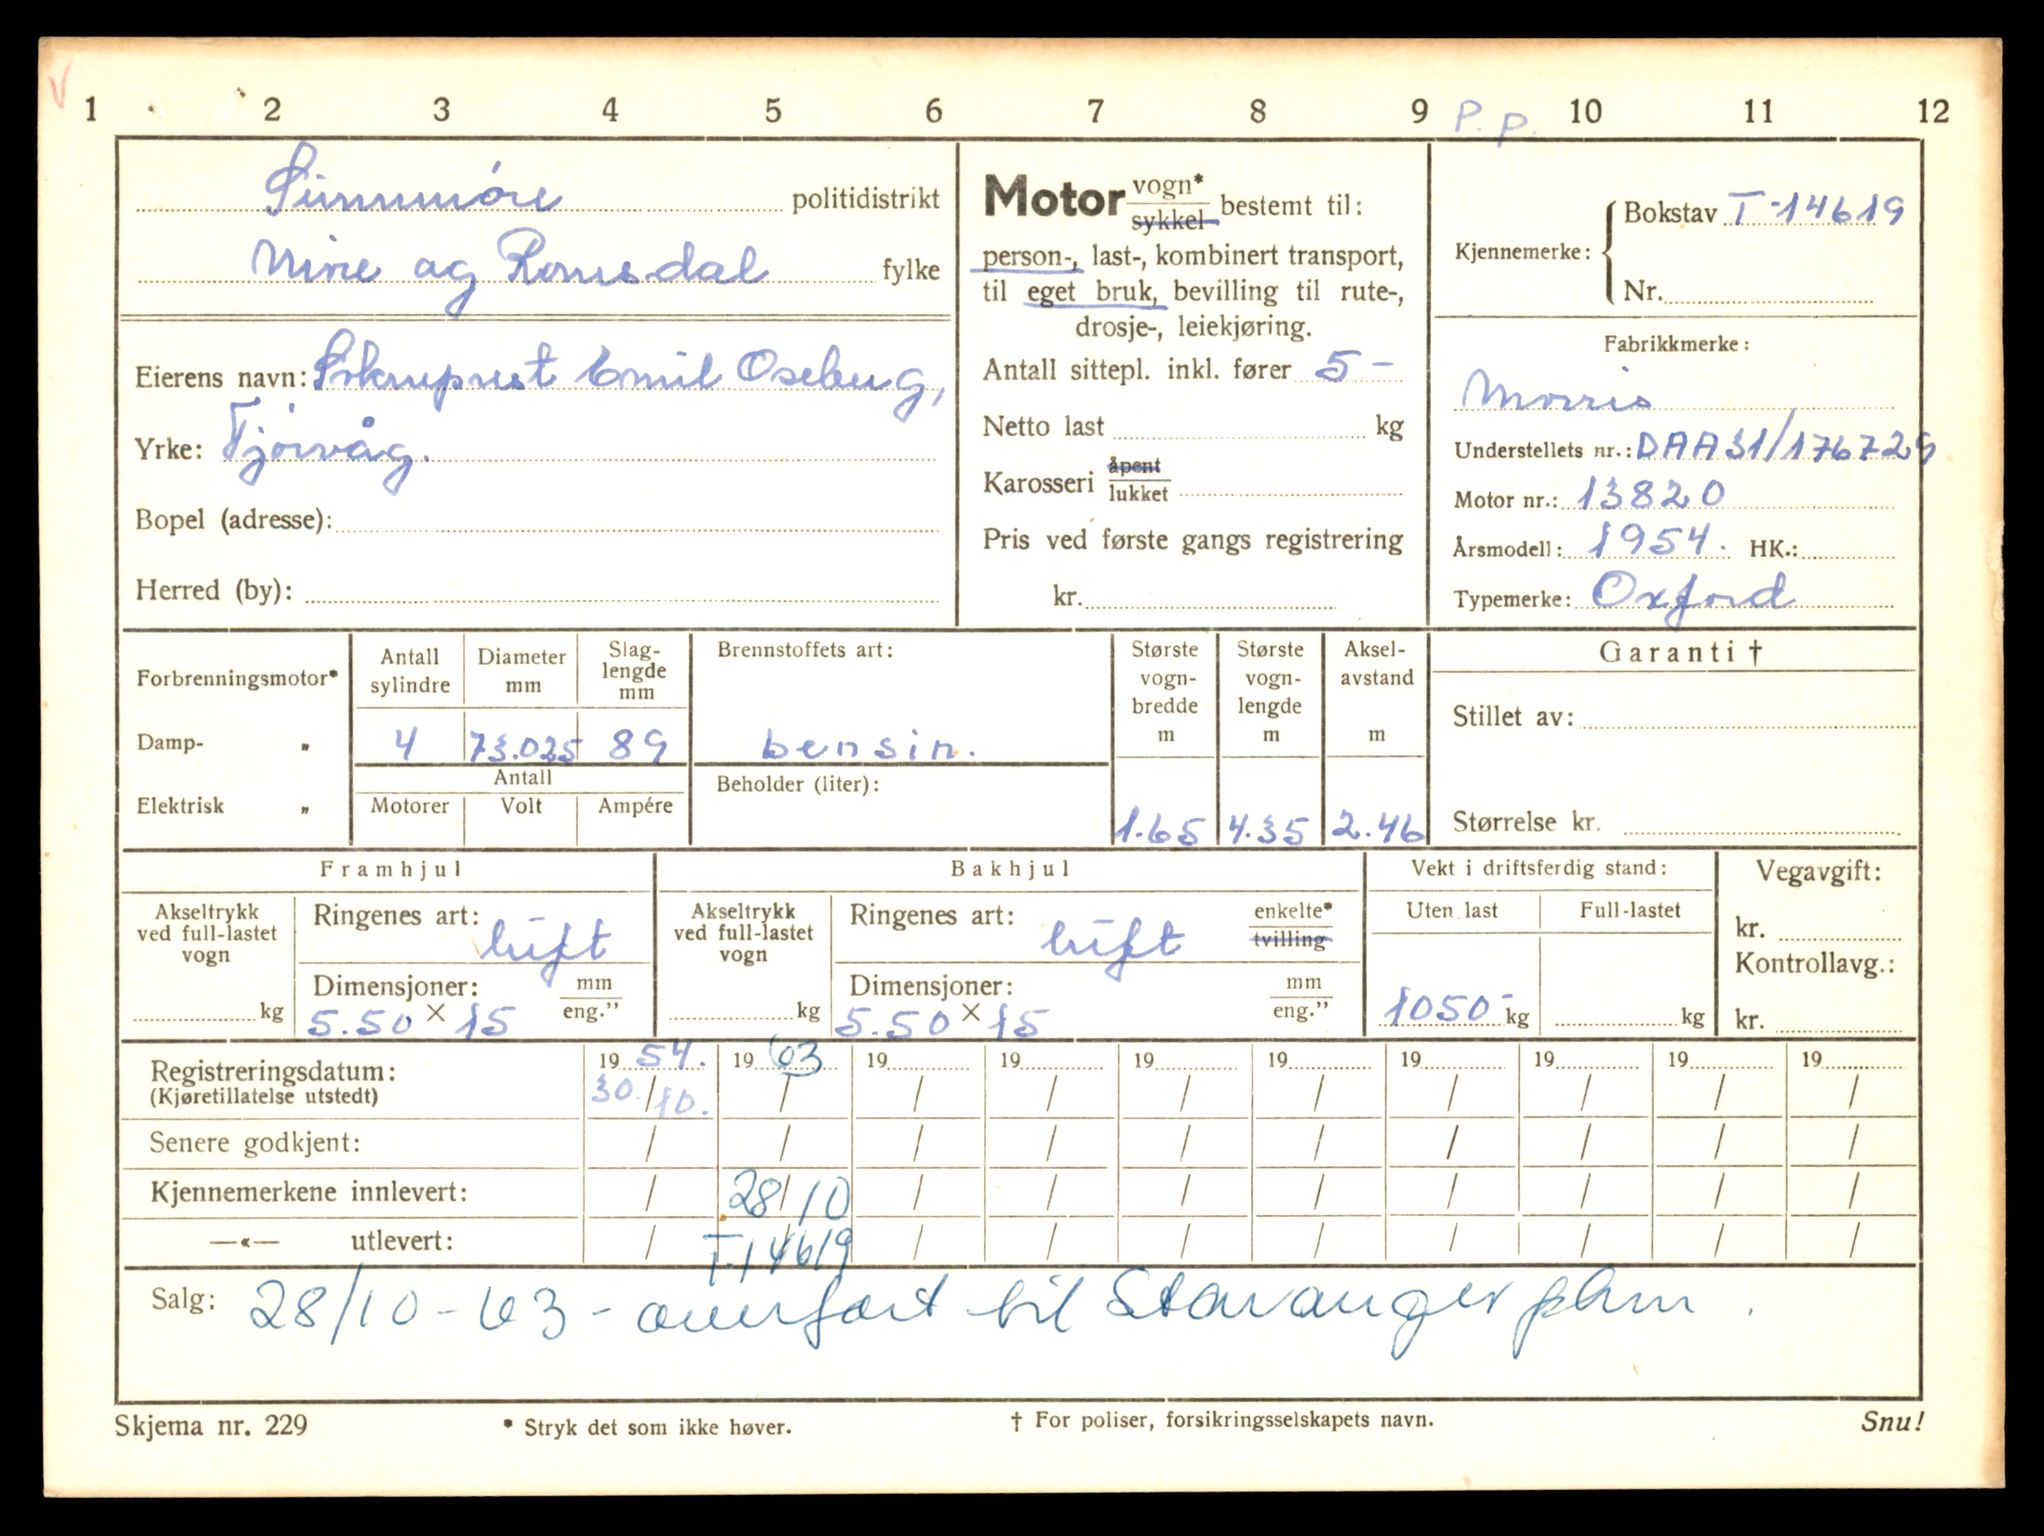 1 2 3 4 5 6 7 8 9 P. P. 10 11 12
Sunnmöre politidistrikt
Möre og Romsdal fylke
Eierens navn: Sokneprest Emil Oseberg,
Yrke: Fjörvåg.
Bopel (adresse):
Herred (by):
Motor vogn* sykkel bestemt til:
person-, last-, kombinert transport,
til eget bruk, bevilling til rute-,
drosje-, leiekjøring.
Antall sittepl. inkl. fører 5 -
Netto last kg
Karosseri åpent lukket
Pris ved første gangs registrering
kr.
Kjennemerke: Bokstav T-14619
Nr.
Fabrikkmerke:
Morris
Understellets nr.: DAA31/176729
Motor nr.: 13820
Årsmodell: 1954. HK.:
Typemerke: Oxford
Forbrenningsmotor*
Damp- „
Elektrisk „
Antall sylindre Diameter mm Slag-lengde mm
4 73.025 89
Antall
Motorer Volt Ampére
Brennstoffets art:
bensin.
Beholder (liter):
Største vogn-bredde m Største vogn-lengde m Aksel-avstand m
1.65 4.35 2.46
Garanti †
Stillet av:
Størrelse kr.
Framhjul
Akseltrykk ved full-lastet vogn
kg
Ringenes art: luft
Dimensjoner: mm eng."
5.50 × 15
Bakhjul
Akseltrykk ved full-lastet vogn
kg
Ringenes art: luft enkelte* tvilling
Dimensjoner: mm eng."
5.50 × 15
Vekt i driftsferdig stand:
Uten last Full-lastet
1050- kg kg
Vegavgift:
kr.
Kontrollavg.:
kr.
Registreringsdatum: 19 54. 19 63 19 19 19 19 19 19 19 19
(Kjøretillatelse utstedt) 30./10. / / / / / / / / /
Senere godkjent: / / / / / / / / / /
Kjennemerkene innlevert: / 28/10 / / / / / / / /
—«— utlevert: / T-14619 / / / / / / / /
Salg: 28/10-63 - overført til Stavanger pkm.
Skjema nr. 229 * Stryk det som ikke høver. † For poliser, forsikringsselskapets navn. Snu!